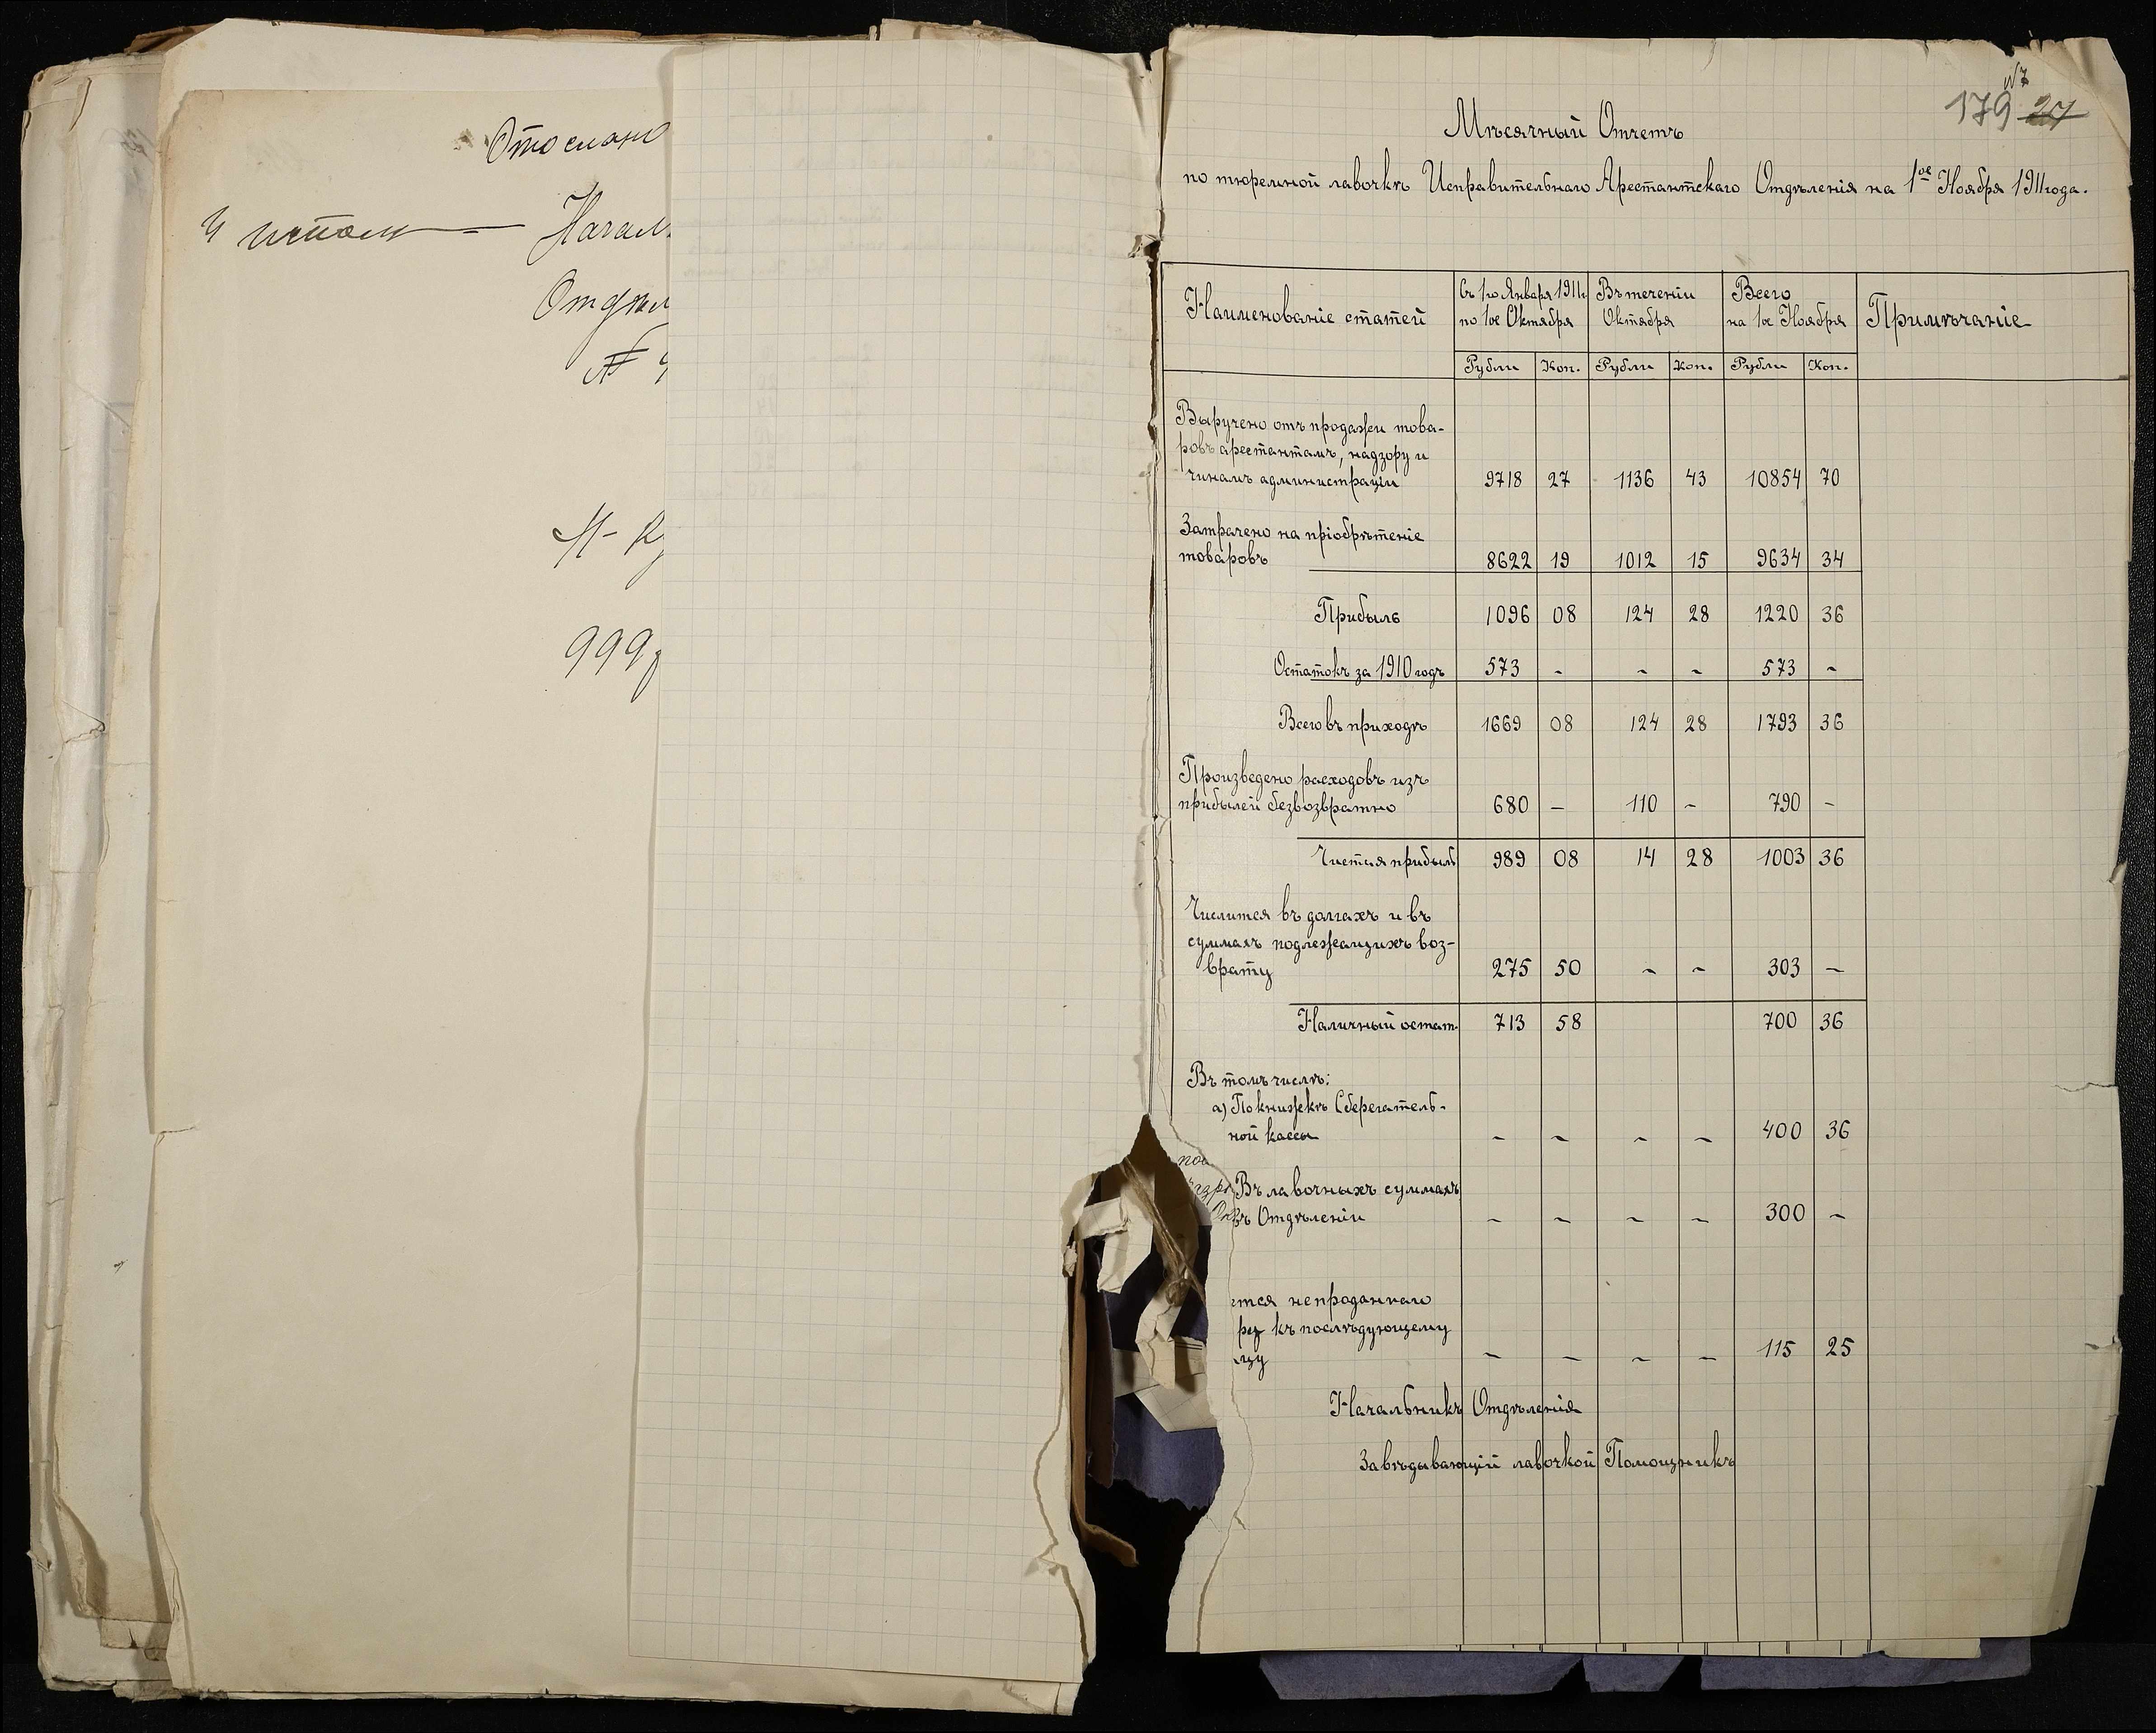 Отослано
Начал
Отдѣл
№
999
№
179 27
Мѣсячный Отчетъ
по тюремной лавочкѣ Исправительнаго Арестантскаго Отдѣленія на 1ое Ноября 1911 года.
Наименованіе статей
Съ 1го Января 1911г.
по 1ое Октября
Въ теченіи
Октября
Всего
на 1ое Ноября
Примѣчаніе
Рубли Коп. Рубли Коп. Рубли Коп.
Выручено отъ продажи това-
ровъ арестантамъ, надзору и
чинамъ администраціи 9718 27 1136 43 10854 70
Затрачено на пріобрѣтеніе
товаровъ 8622 19 1012 15 9634 34
Прибыль 1096 08 124 28 1220 36
Остатокъ за 1910 годъ 573 - - - 573 -
Всего въ приходѣ 1669 08 124 28 1793 36
Произведено расходовъ изъ
прибылей безвозвратно 680 - 110 - 790 -
Чистая прибыль 989 08 14 28 1003 36
Числится въ долгахъ и въ
суммахъ подлежащихъ воз-
врату 275 50 - - 303 -
Наличный остат. 713 58 700 36
Въ томъ числѣ:
а) По книжкѣ Сберегатель-
ной кассы - - - - 400 36
Въ лавочныхъ суммахъ
въ Отдѣленіи - - - - 300 -
ется непроданнаго
ру къ послѣдующему
яцу - - - - 115 25
Начальникъ Отдѣленія
Завѣдывающій лавочкой Помощникъ